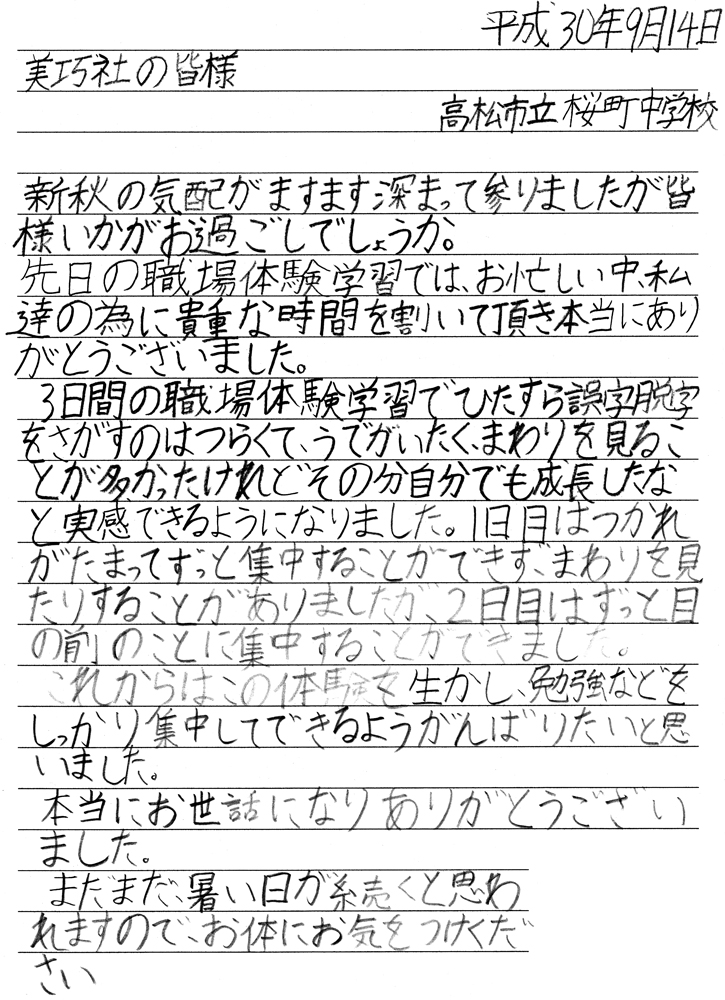 平成30年9月14日
美巧社の皆様
高松市立桜町中学校
新秋の気配がますます深まって参りましたが皆
様いかがお過ごしでしょうか。
先日の職場体験学習では、お忙しい中、私
達の為に貴重な時間を割いて頂き本当にあり
がとうございました。
3日間の職場体験学習でひたすら誤字脱字
をさがすのはつらくて、うでがいたく、まわりを見るこ
とが多かったけれどその分自分でも成長したな
と実感できるようになりました。1日目はつかれ
がたまってずっと集中することができず、まわりを見
たりすることがありましたが、2日目はずっと目
の前のことに集中することができました。
これからはこの体験を生かし、勉強などを
しっかり集中してできるようがんばりたいと思
いました。
本当にお世話になりありがとうござい
ました。
まだまだ、暑い日が続くと思わ
れますので、お体にお気をつけくだ
さい